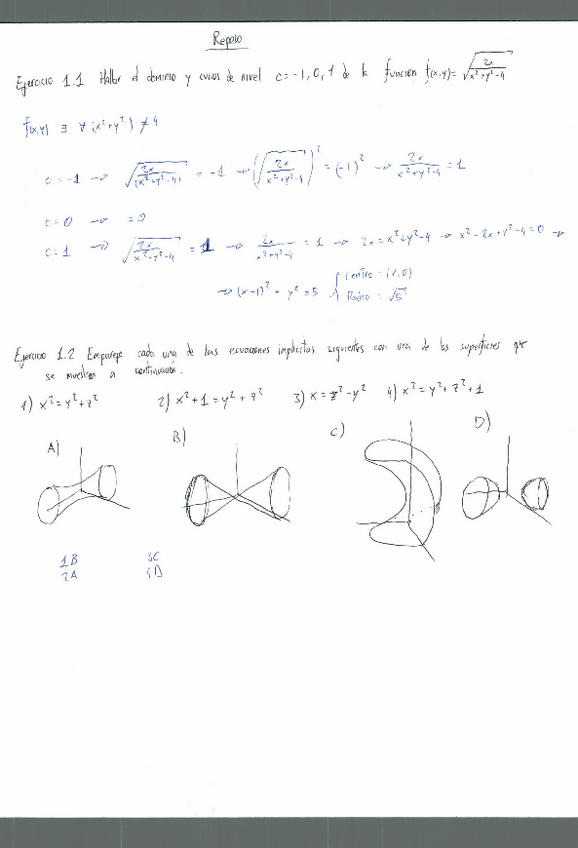 Repaso
Ejercicio 1.1 Hallar el dominio y curvas de nivel c=-1, 0, 1 de la función f(x,y)= √(2x/(x²+y²-4))
f(x,y) ∃ ∀ (x²+y²) ≠ 4
c=-1 → √(2x/(x²+y²-4)) = -1 → (√(2x/(x²+y²-4)))² = (-1)² → 2x/(x²+y²-4) = 1
c=0 → =0
c=1 → √(2x/(x²+y²-4)) = 1 → 2x/(x²+y²-4) = 1 → 2x = x²+y²-4 → x²-2x+y²-4=0 →
→ (x-1)² + y² = 5 { Centro = (1,0)
Radio = √5
Ejercicio 1.2 Empareje cada una de las ecuaciones implícitas siguientes con una de las superficies que
se muestran a continuación.
1) x²=y²+z² 2) x²+1=y²+z² 3) x=z²-y² 4) x²=y²+z²+1
A) B) C) D)
1B 3C
2A 4D